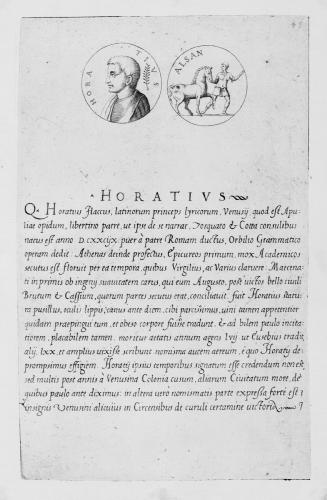 45
HORATIVS
ALSAN
HORATIVS
Q. Horatius flaccus, latinorum princeps lyricorum, Venusij, quod est Apu-
liae opidum, libertino patre, ut ipse de se narrat, Torquato & Cotta consulibus
natus est anno D.CXXCIX. puer à patre Romam ductus, Orbilio Grammatico
operam dedit. Athenas deinde profectus, Epicureos primum, mox Academicos
secutus est. floruit per ea tempora, quibus Virgilius, ac Varius claruere. Maecena-
ti in primis ob ingenij suauitatem carus, qui eum Augusto, post victos bello ciuili
Brutum & Cassium, quorum partes secutus erat, conciliauit. fuit Horatius statu-
ra pusillus, oculis lippus, canus ante diem, cibi parcissimus, uini tamen appetentior
quidam praepingui tum, et obeso corpore fuisse tradunt. & ad bilem paulo incita-
tiorem, placabilem tamen. moritur aetatis annum agens lvij ut Eusebius tradit
alij. lxx. et amplius uixisse scribunt. nomisma autem aereum, è quo Horatij de-
prompsimus effigiem. Horatij ipsius temporibus signatum esse credendum non est,
sed multis post annis à Venusina Colonia cusum, aliarum Ciuitatum more, de
quibus paulo ante diximus: in altera uerò nomismatis parte expressa fortè est i
insignis Venusini alicuius in Circensibus de curuli certamine uictoria